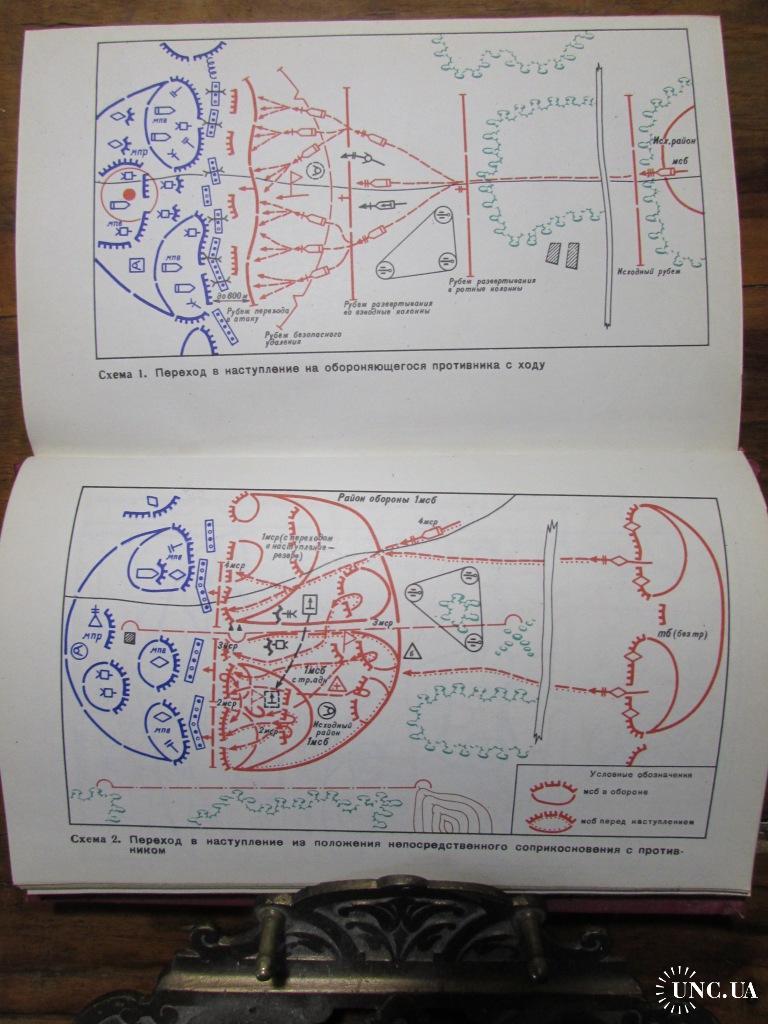 мпв
мпр
мпв
мпв
А
до 800м
Рубеж перехода
в атаку
Рубеж безопасного
удаления
А
Рубеж развертывания
во взводные колонны
Рубеж развертывания
в ротные колонны
Исходный рубеж
Исх. район
мсб
Схема 1. Переход в наступление на обороняющегося противника с ходу
Район обороны 1мсб
1мср (с переходом
в наступление —
резерв)
4мср
4мср
мпв
3мср
3мср
мпр
А
мпв
1мсб
с тр.адн
2мср
2мср
А
Исходный
район
1мсб
мпв
б
тб (без тр)
Условные обозначения
мсб в обороне
мсб перед наступлением
Схема 2. Переход в наступление из положения непосредственного соприкосновения с против-
ником
UNC.UA